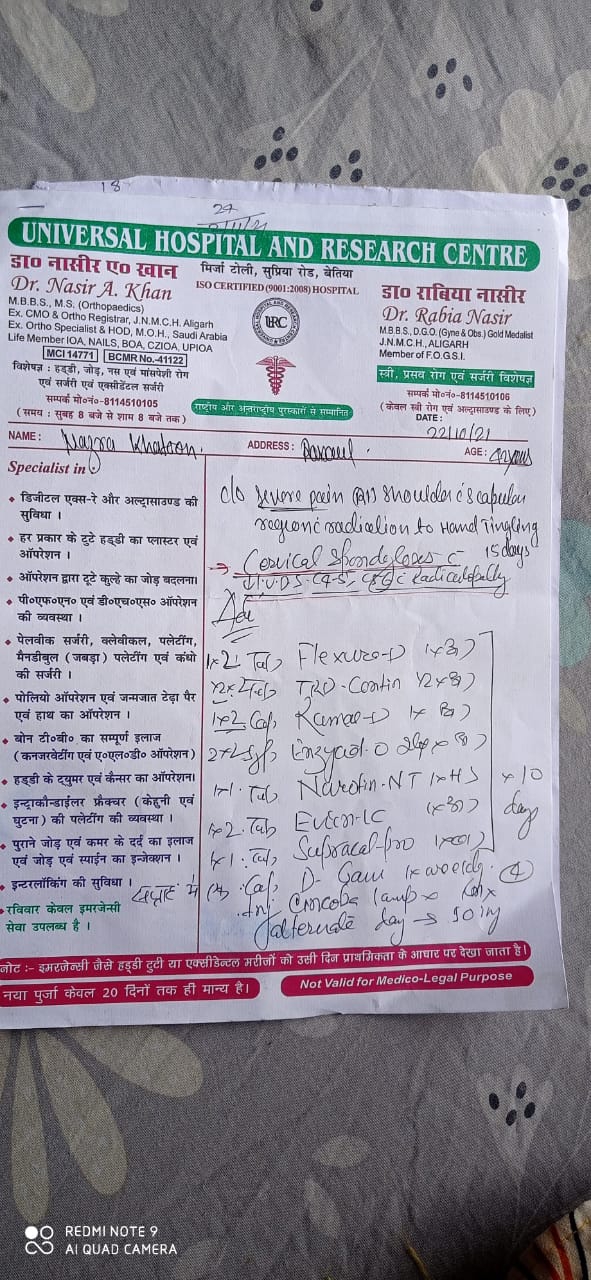 18
24
UNIVERSAL HOSPITAL AND RESEARCH CENTRE
डा० नासीर ए० खान
Dr. Nasir A. Khan
M.B.B.S., M.S. (Orthopaedics)
Ex. CMO & Ortho Registrar, J.N.M.C.H. Aligarh
Ex. Ortho Specialist & HOD, M.O.H., Saudi Arabia
Life Member IOA, NAILS, BOA, CZIOA, UPIOA
MCI 14771 BCMR No.-41122
विशेषज्ञ : हड्डी, जोड़, नस एवं मांसपेशी रोग
एवं सर्जरी एवं एक्सीडेंटल सर्जरी
सम्पर्क मो०नं०-8114510105
(समय : सुबह 8 बजे से शाम 8 बजे तक)
मिर्जा टोली, सुप्रिया रोड, बेतिया
ISO CERTIFIED (9001:2008) HOSPITAL
UNIVERSAL HOSPITAL AND RESEARCH CENTRE
URC
राष्ट्रीय और अन्तर्राष्ट्रीय पुरस्कारों से सम्मानित
डा० राबिया नासीर
Dr. Rabia Nasir
M.B.B.S., D.G.O. (Gyne & Obs.) Gold Medalist
J.N.M.C.H., ALIGARH
Member of F.O.G.S.I.
स्त्री, प्रसव रोग एवं सर्जरी विशेषज्ञ
सम्पर्क मो०नं०-8114510106
(केवल स्त्री रोग एवं अल्ट्रासाउण्ड के लिए)
DATE :
22/10/21
NAME : Nazra Khatoon. ADDRESS : AGE :
Specialist in
डिजीटल एक्स-रे और अल्ट्रासाउण्ड की
सुविधा ।
हर प्रकार के टुटे हड्डी का प्लास्टर एवं
ऑपरेशन ।
ऑपरेशन द्वारा टूटे कुल्हे का जोड़ बदलना।
पी०एफ०एन० एवं डी०एच०एस० ऑपरेशन
की व्यवस्था ।
पेलवीक सर्जरी, क्लेवीकल, पलेटींग,
मैनडीबुल (जबड़ा) पलेटींग एवं कंधो
की सर्जरी ।
पोलियो ऑपरेशन एवं जन्मजात टेढ़ा पैर
एवं हाथ का ऑपरेशन ।
बोन टी०बी० का सम्पूर्ण इलाज
(कनजरवेटींग एवं ए०एल०डी० ऑपरेशन)
हड्डी के ट्युमर एवं कैंसर का आपरेशन।
इन्ट्राकौन्डाईलर फ्रैक्चर (केहुनी एवं
घुटना ) की पलेटींग की व्यवस्था ।
पुराने जोड़ एवं कमर के दर्द का इलाज
एवं जोड़ एवं स्पाईन का इन्जेक्शन ।
इन्टरलॉकिंग की सुविधा ।
रविवार केवल इमरजेन्सी
सेवा उपलब्ध है ।
c/o severe pain shoulder c scapular
region c radiation to Hand Tingling
15 days
Cervical Spondyloses c
c Radiculopathy
Adv
1x2 Tab Flexura-D
Tab TRD-Contin
1x2 Cap Kamae-D
Syp Enzyad-O
1x1. Tab Narotin-NT 1xHS
1x2. Tab Euten-IC
1x1. Tab Supracal-pro
x 10
day
सप्ताह में Cap. D-Gain 1xweekly. (4)
Inj 1amp x
alternate day → 10 inj
नोट :- इमरजेन्सी जैसे हड्डी टुटी या एक्सीडेन्टल मरीजों को उसी दिन प्राथमिकता के आधार पर देखा जाता है।
नया पुर्जा केवल 20 दिनों तक ही मान्य है।
Not Valid for Medico-Legal Purpose
REDMI NOTE 9
AI QUAD CAMERA